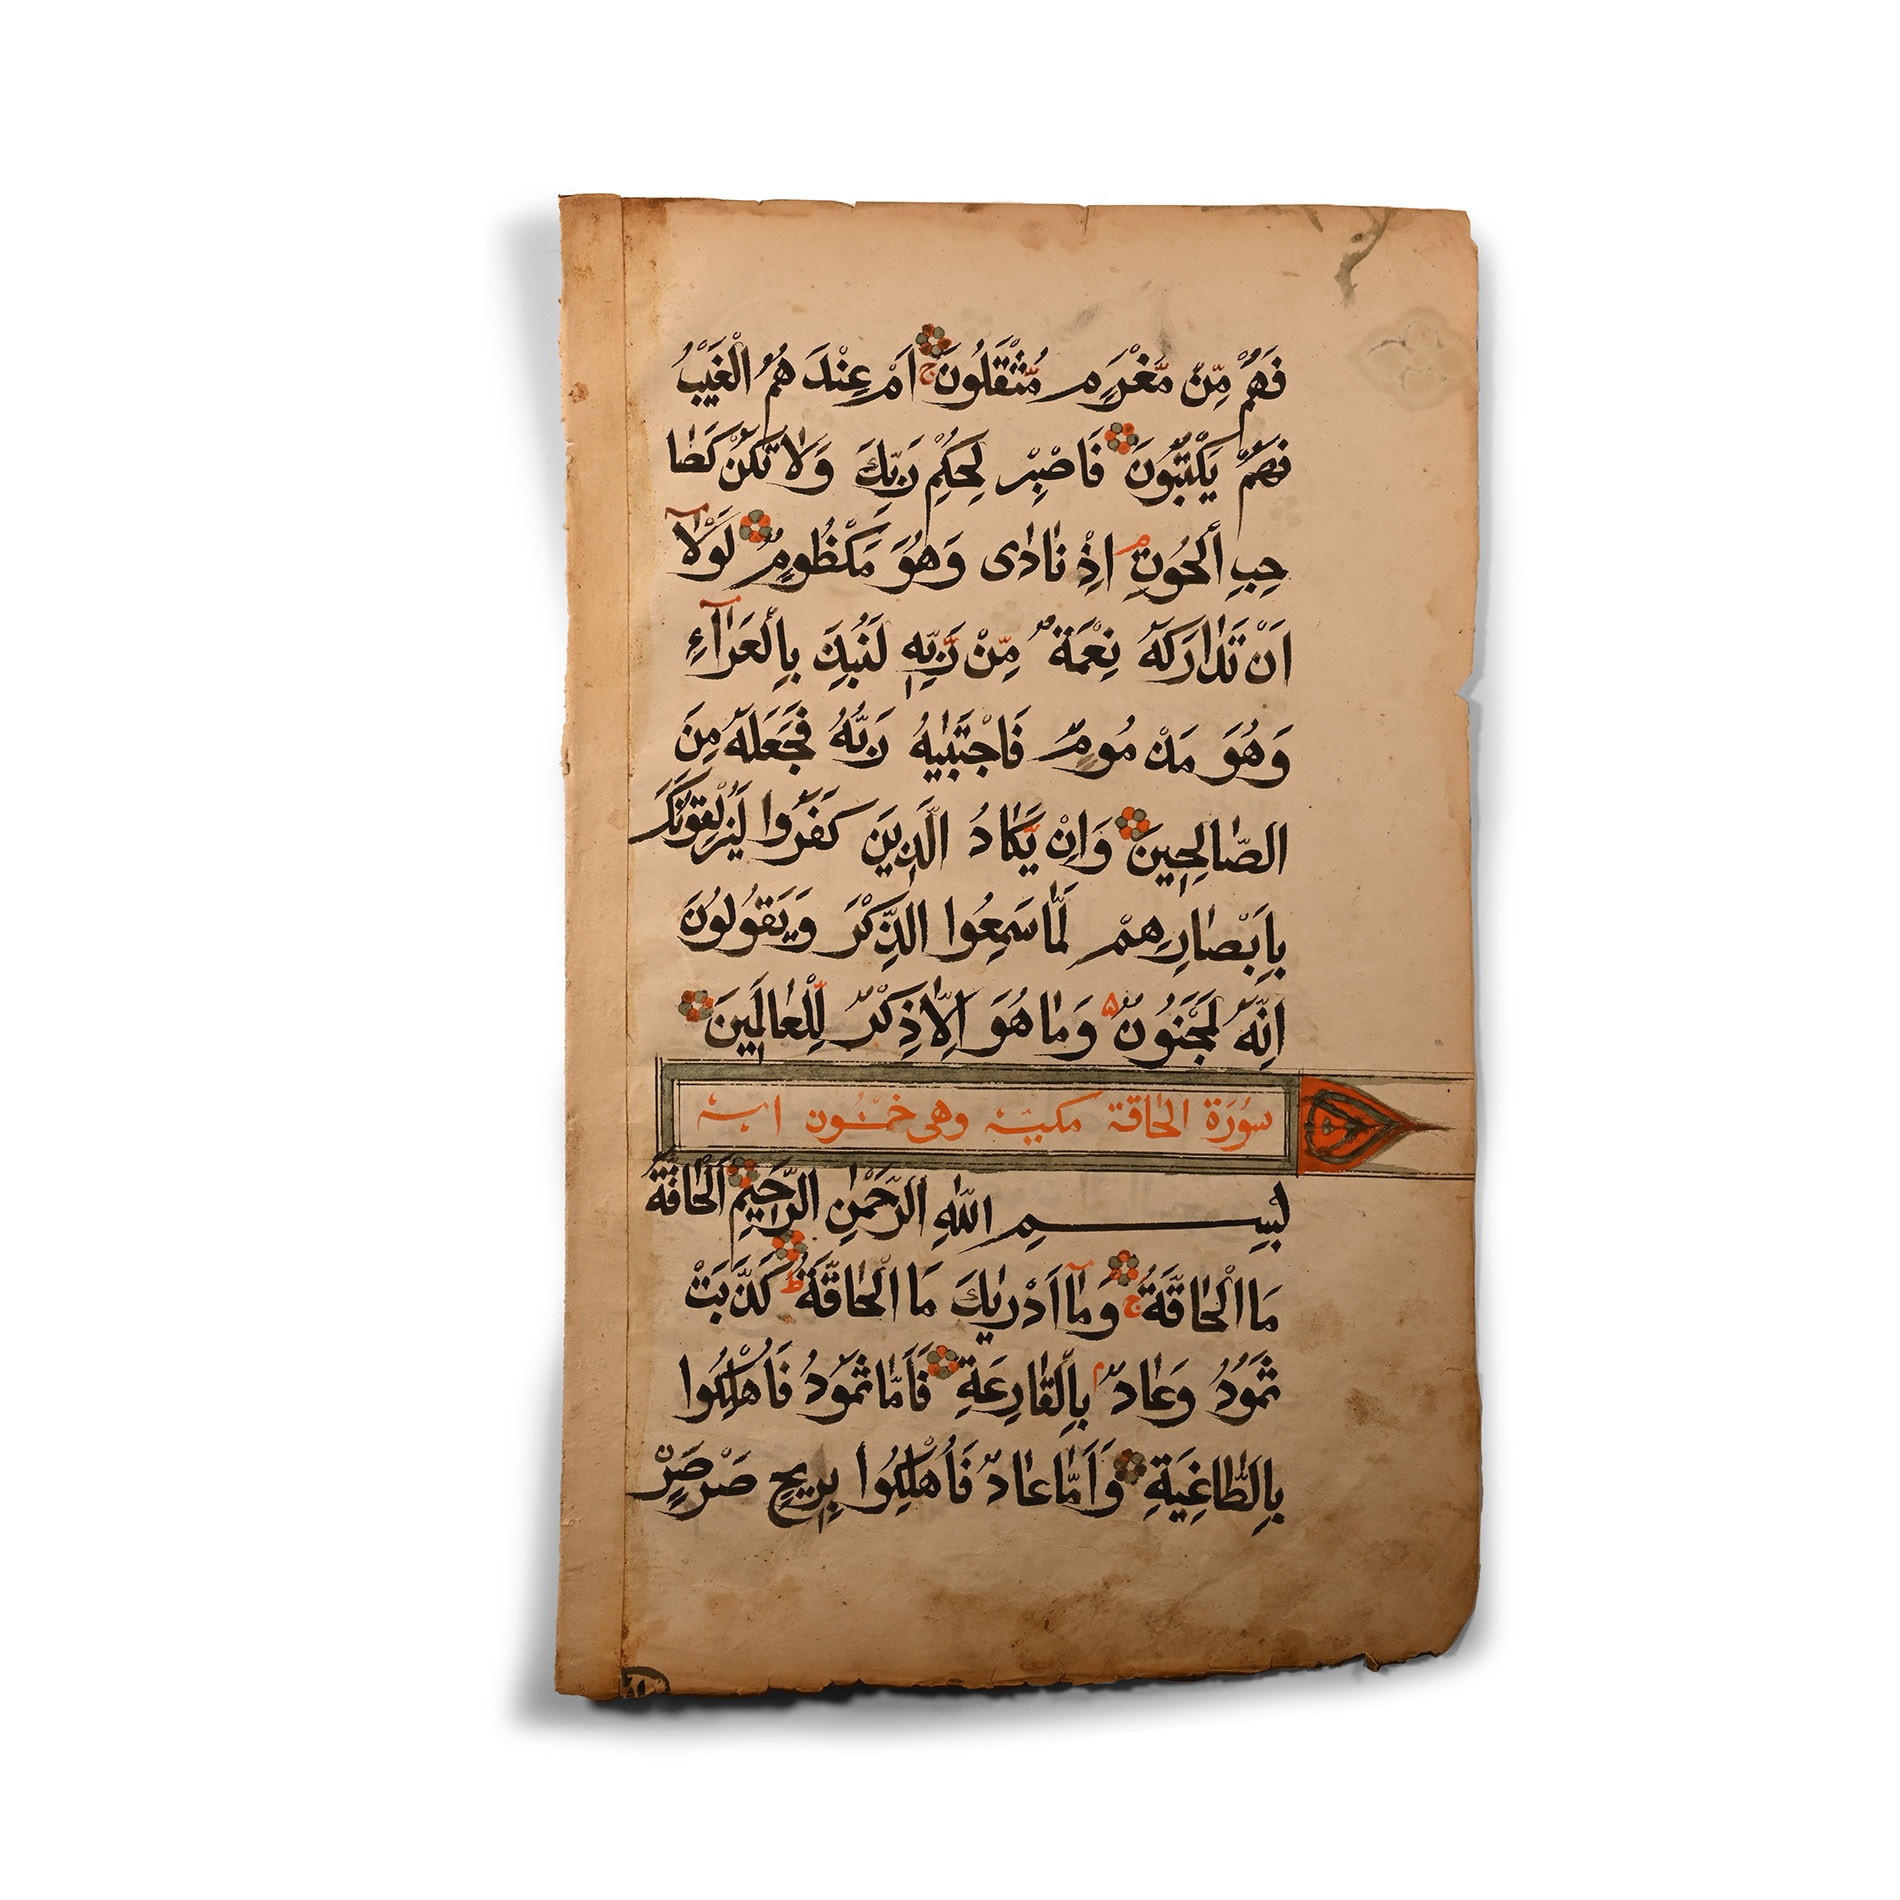 فَهُمْ مِّنْ مَّغْرَمٍ مُّثْقَلُونَ ج اَمْ عِنْدَهُمُ الْغَيْبُ
فَهُمْ يَكْتُبُونَ فَاصْبِرْ لِحُكْمِ رَبِّكَ وَلَا تَكُنْ كَصَا
حِبِ الْحُوتِ م اِذْ نَادٰى وَهُوَ مَكْظُومٌ لَوْلَآ
اَنْ تَدَارَكَهُ نِعْمَةٌ مِّنْ رَّبِّهٖ لَنُبِذَ بِالْعَرَآءِ
وَهُوَ مَذْمُومٌ فَاجْتَبٰيهُ رَبُّهُ فَجَعَلَهُ مِنَ
الصَّالِحِينَ وَاِنْ يَّكَادُ الَّذِينَ كَفَرُوا لَيُزْلِقُونَكَ
بِاَبْصَارِهِمْ لَمَّا سَمِعُوا الذِّكْرَ وَيَقُولُونَ
اِنَّهُ لَمَجْنُونٌ ۵ وَمَا هُوَ اِلَّا ذِكْرٌ لِّلْعَالَمِينَ
سُورَة الحَاقة مكية وهى خمسون اية
بِسْمِ اللّٰهِ الرَّحْمٰنِ الرَّحِيمِ اَلْحَاقَّةُ
مَا الْحَاقَّةُ ج وَمَآ اَدْرٰيكَ مَا الْحَاقَّةُ ط كَذَّبَتْ
ثَمُودُ وَعَادٌ م بِالْقَارِعَةِ فَاَمَّا ثَمُودُ فَاُهْلِكُوا
بِالطَّاغِيَةِ وَاَمَّا عَادٌ فَاُهْلِكُوا بِرِيحٍ صَرْصَرٍ